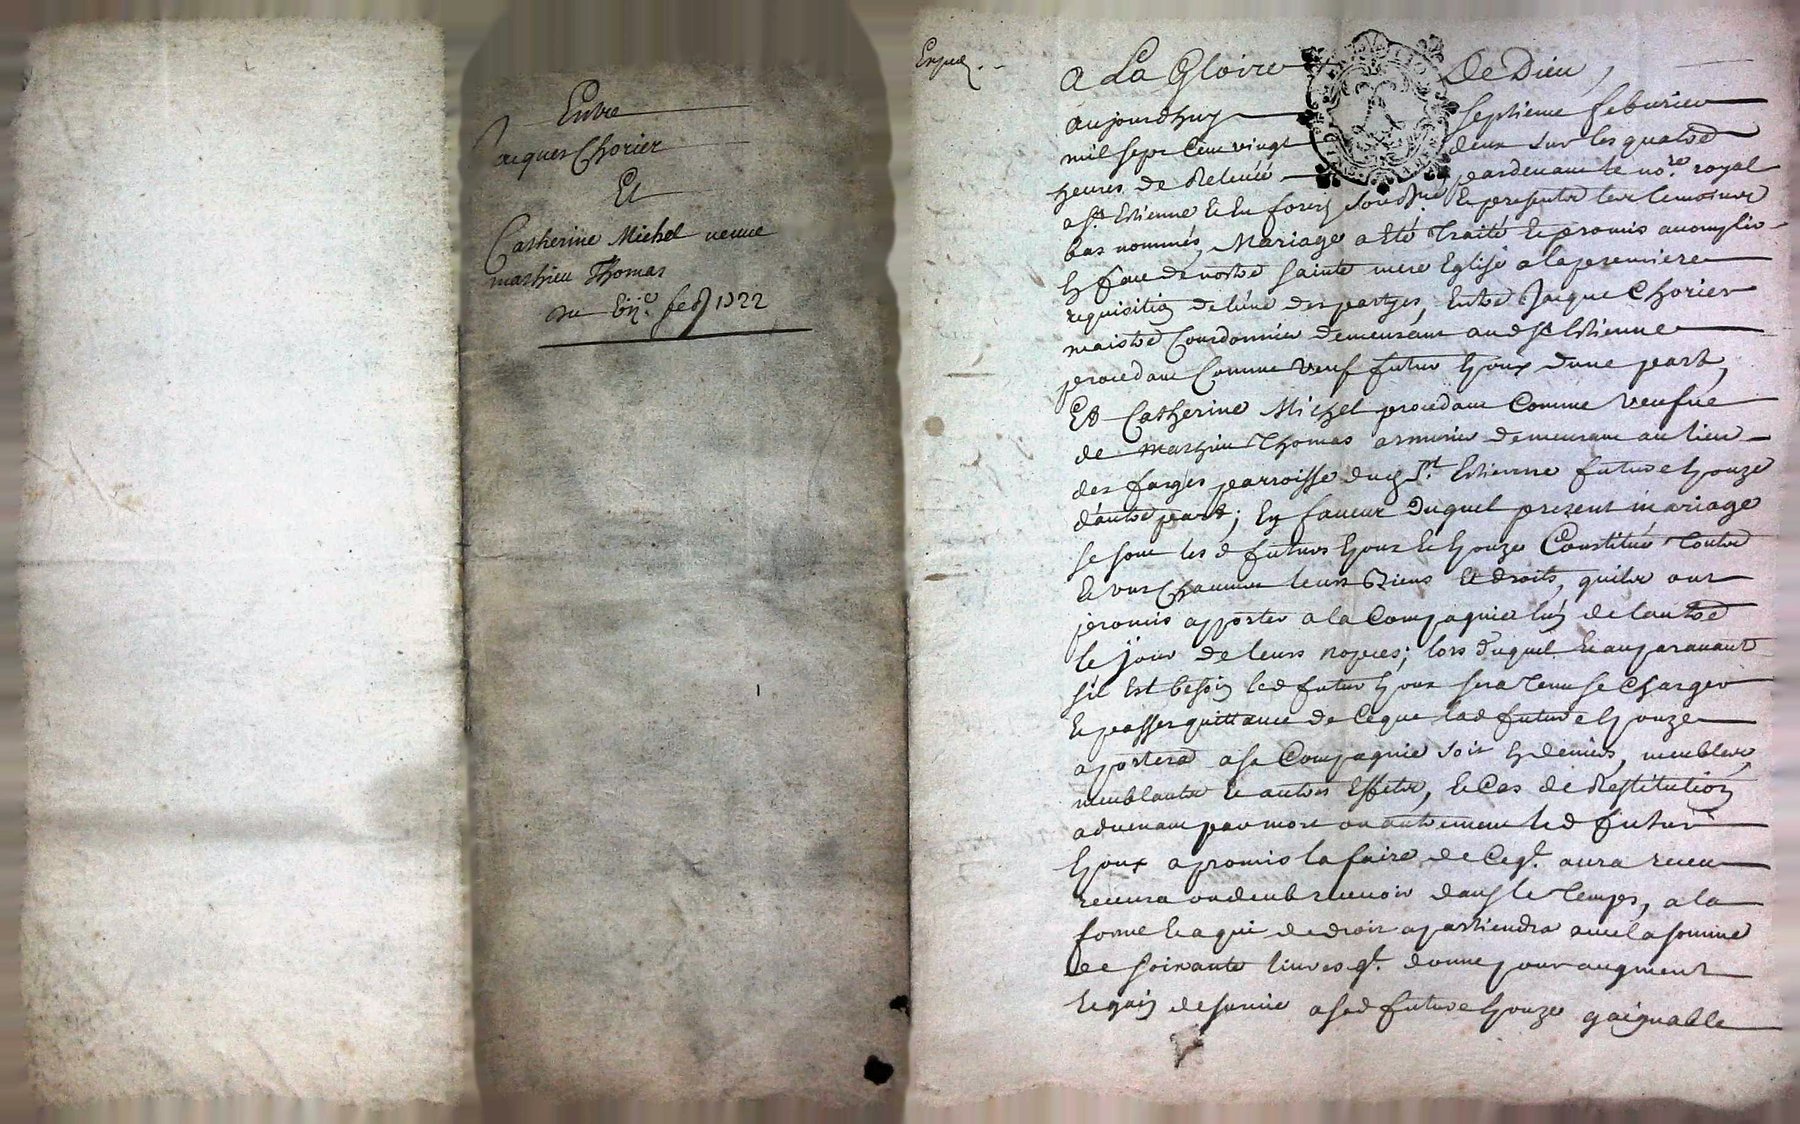 Entre
Jacques Chorier
Et
Catherine Michel veuve
mathieu Thomas
du vij.e feb 1722
A La Gloire De Dieu,
aujourdhuy septieme febvrier
mil sept Cent vingt deux sur les quatre
heures de Relevée pardevant le no.re royal
a st Estienne Et En forez soubsne Et presents les temoins
bas nommés, Mariage a Eté Traité Et promis accomplir
En face de nostre sainte mere Eglise a la premiere
requisition de lune des partyes, Entre Jacque Chorier
maistre Courdonnier demeurant aud st Estienne
procedant Comme veuf futur Epoux dune part,
Et Catherine Michel procedant Comme veufve
de mathieu Thomas armurier demeurant au lieu
des farges parroisse dud St. Estienne future Epouze
d'autre part; En faveur duquel present mariage
se sont les d futurs Epoux Et Epouze Constitué Toutes
Et uns Chacuns leurs Biens Et droits, quils ont
promis apporter a la Compagnie lun de lautre
le jour de leurs nopces; lors duquel Et auparavant
sil Est besoin led futur Epoux sera Tenu se Charger
Et passer quittance de Ceque lad future Epouze
aportera a sa Compagnie soit En deniers, meubles,
meublants Et autres Effets, Et Cas de Restitution
advenant par mort ou autrement led futur
Epoux a promis la faire de Ceq. aura receu
recevra ou deub recevoir dans le Temps, a la
forme Et a qui de droit apartiendra avec la somme
de soixante livres q. donne pour augment
Et gain de survie a sad future Epouze gaignable